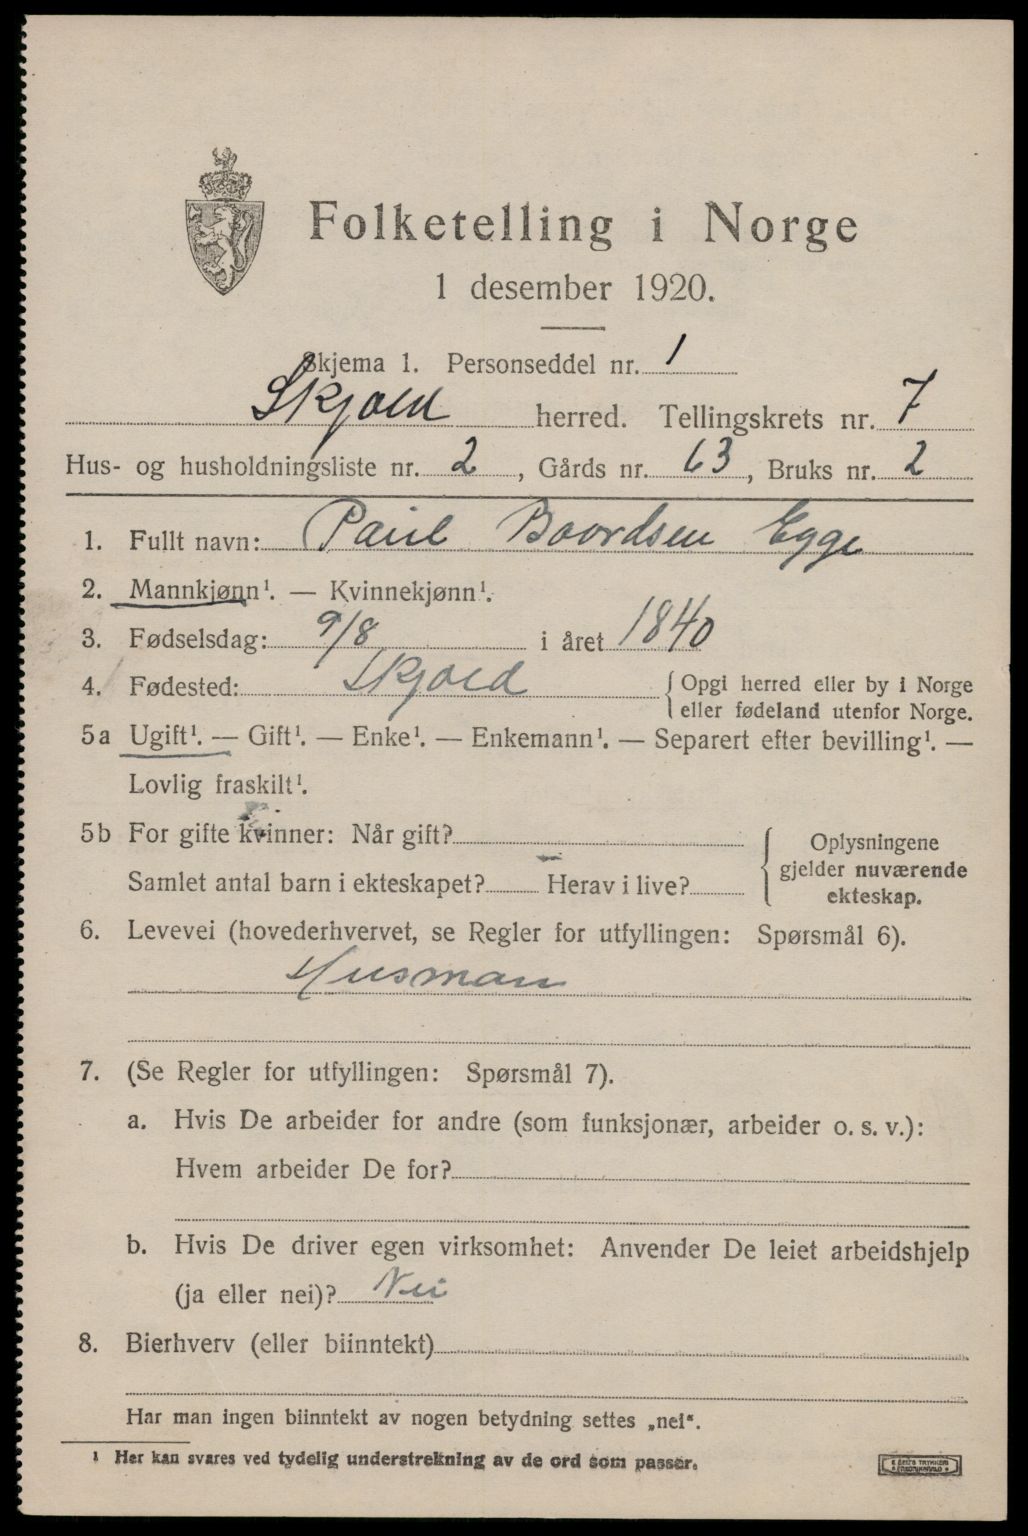 Folketelling i Norge
1 desember 1920.
Skjema 1. Personseddel nr. 1
Skjold herred. Tellingskrets nr. 7
Hus- og husholdningsliste nr. 2, Gårds nr. 63, Bruks nr. 2
1. Fullt navn: Paul Boordsen Egge
2. Mannkjønn¹. — Kvinnekjønn¹.
3. Fødselsdag: 9/8 i året 1840
4. Fødested: Skjold { Opgi herred eller by i Norge
eller fødeland utenfor Norge.
5a Ugift¹. — Gift¹. — Enke¹. — Enkemann¹. — Separert efter bevilling¹. —
Lovlig fraskilt¹.
5b For gifte kvinner: Når gift?
Samlet antal barn i ekteskapet? Herav i live?
Oplysningene
gjelder nuværende
ekteskap.
6. Levevei (hovederhvervet, se Regler for utfyllingen: Spørsmål 6).
Husman
7. (Se Regler for utfyllingen: Spørsmål 7).
a. Hvis De arbeider for andre (som funksjonær, arbeider o. s. v.):
Hvem arbeider De for?
b. Hvis De driver egen virksomhet: Anvender De leiet arbeidshjelp
(ja eller nei)? Nei
8. Bierhverv (eller biinntekt)
Har man ingen biinntekt av nogen betydning settes „nei“.
¹ Her kan svares ved tydelig understrekning av de ord som passer.